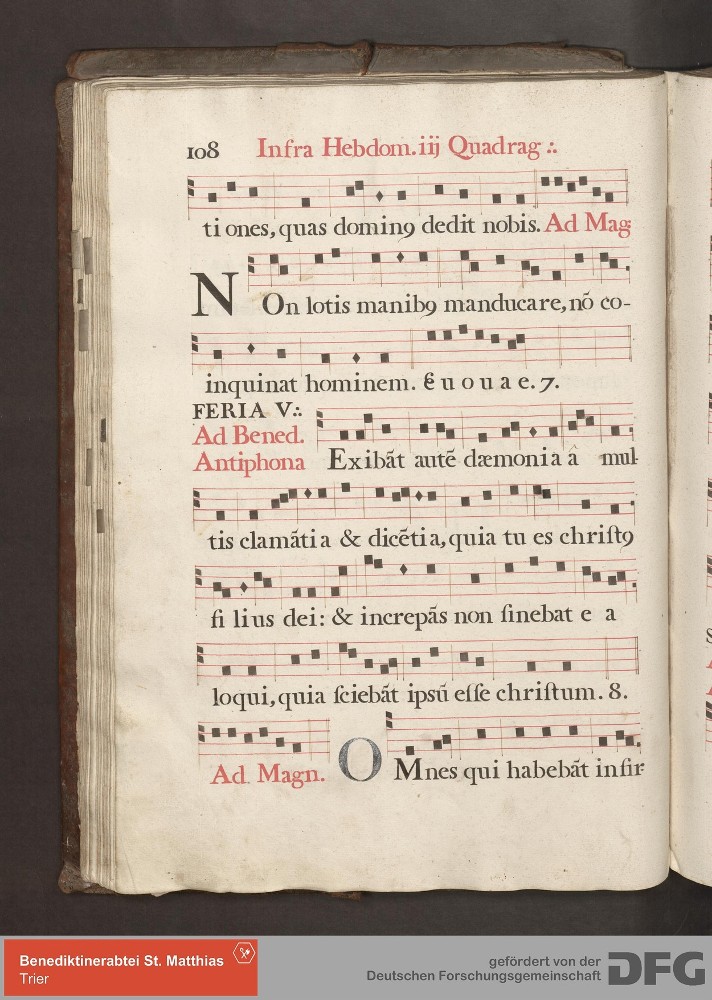 108 Infra Hebdom. iij Quadrag ∴
ti ones, quas dominꝯ dedit nobis. Ad Mag:
NOn lotis manibꝯ manducare, nõ co-
inquinat hominem. e u o u a e. 7.
FERIA V.:
Ad Bened.
Antiphona
Exibãt autẽ dæmonia â mul-
tis clamãti a & dicẽti a, quia tu es chriſtꝯ
fi lius dei: & increpãs non ſinebat e a
loqui, quia ſciebãt ipsũ eſſe chriſtum. 8.
Ad Magn.
OMnes qui habebãt infir-
Benediktinerabtei St. Matthias
Trier
gefördert von der
Deutschen Forschungsgemeinschaft
DFG